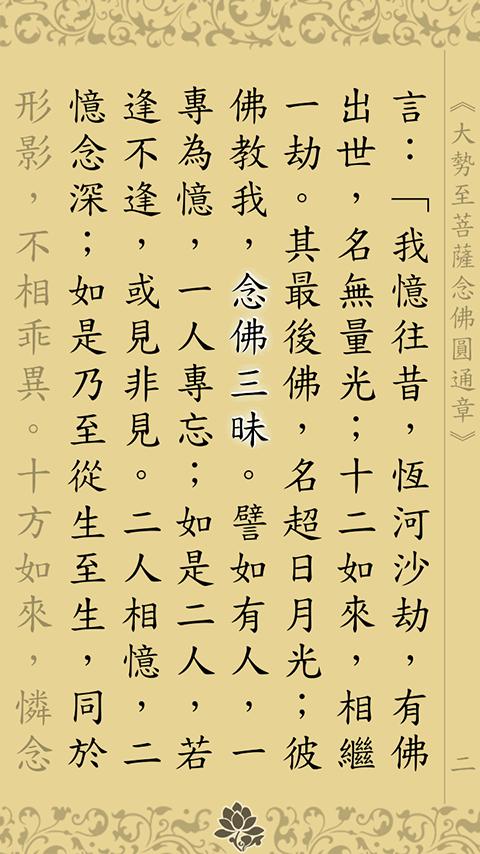 《大勢至菩薩念佛圓通章》 二
言：「我憶往昔，恆河沙劫，有佛
出世，名無量光；十二如來，相繼
一劫。其最後佛，名超日月光；彼
佛教我，念佛三昧。譬如有人，一
專為憶，一人專忘；如是二人，若
逢不逢，或見非見。二人相憶，二
憶念深；如是乃至從生至生，同於
形影，不相乖異。十方如來，憐念